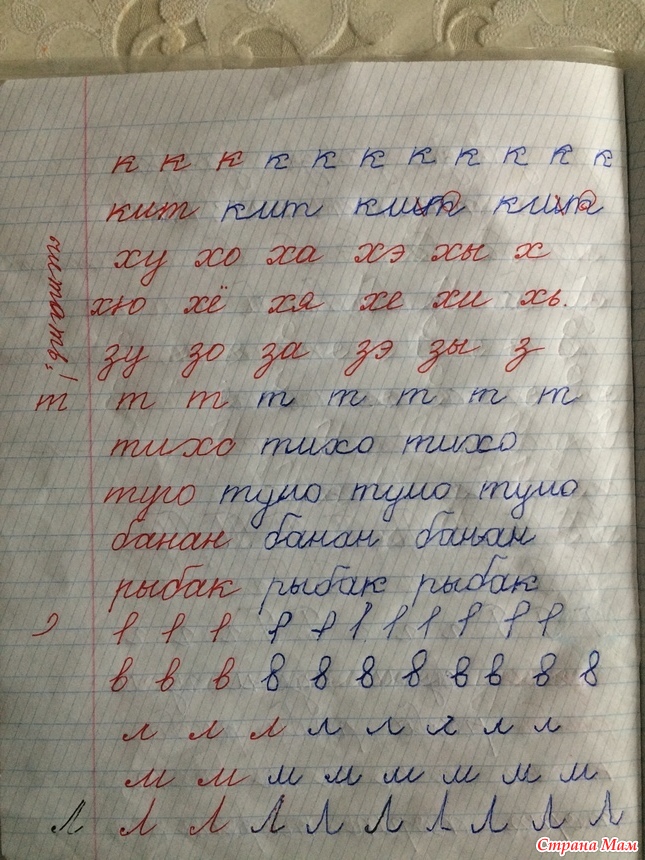 к к к к к к к к к к к
кит кит кит кит
ху хо ха хэ хы х
хю хё хя хе хи хь.
зу зо за зэ зы з
т т т т т т т т
тихо тихо тихо
туго туго туго туго
банан банан банан
рыбак рыбак рыбак
в в в в в в в в в в
л л л л л л л л
м м м м м м м м
Л Л Л Л Л Л Л Л Л Л
Страна Мам